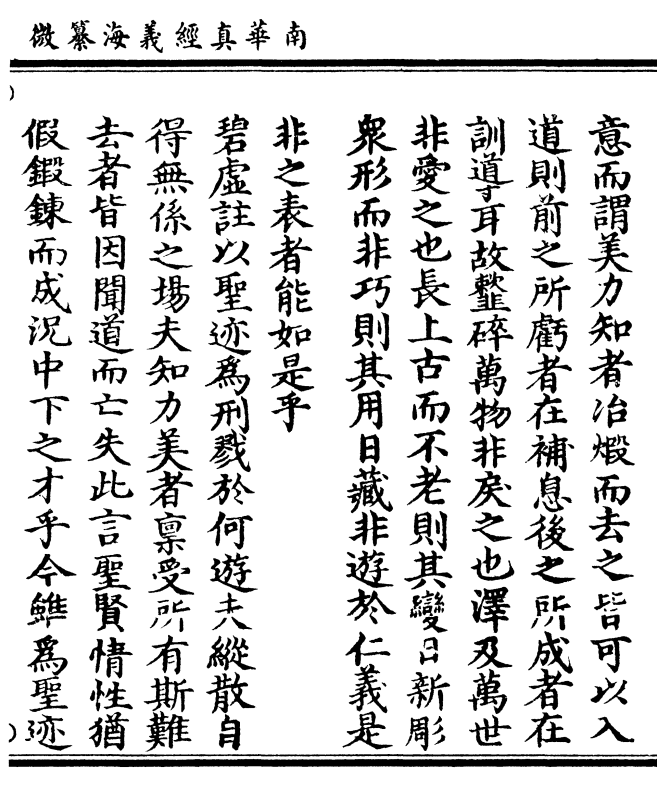 南華真經義海纂微
意而謂美力知者冶煅而去之皆可以入
道則前之所虧者在補息後之所成者在
訓導耳故䪠碎萬物非戾之也澤及萬世
非愛之也長上古而不老則其變日新彫
衆形而非巧則其用日藏非遊於仁義是
非之表者能如是乎
碧虛註以聖迹為刑戮於何遊夫縱散自
得無係之場夫知力美者禀受所有斯難
去者皆因聞道而亡失此言聖賢情性猶
假鍛鍊而成況中下之才乎今雖為聖迹